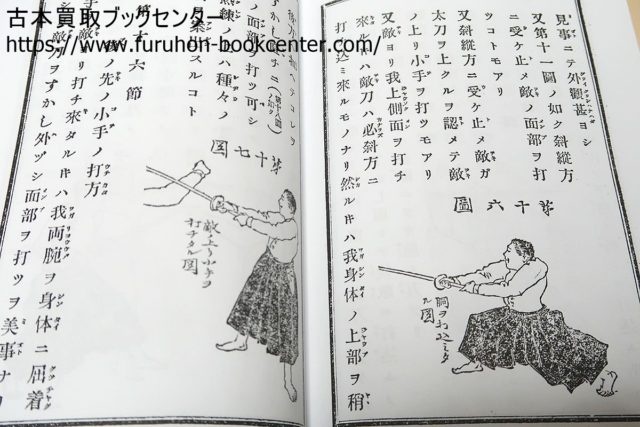 古本買取ブックセンター
https://www.furuhon-bookcenter.com/
見事ニテ外觀甚ヨシ
又第十一圖ノ如ク斜縱方
ニ受ケ止メ敵ノ面部ヲ打
ツコトモアリ
又斜縱方ニ受ケ止メ敵ガ
太刀ヲ上クルヲ認メテ敵
ノ上リ小手ヲ打ツモアリ
敵ヨリ我上側面ヲ打チ
來ルトハ敵刀ハ必斜方ニ
打チ込ミ來ルモノナリ然ルキハ我身体ノ上部ヲ稍
第十六圖
胴ヲ打込ミタル圖
第十七圖
敵ノ上リ小手ヲ
打チタル圖
面部ヲ打ツ可シ
熟練ノ上ハ種々ノ
業スルコト
第十六節
先ノ小手ノ打方
打チ來タルキハ我両腕ヲ身体ニ屈着
敵刀ヲすかし外ヅシ面部ヲ打ツヲ美事ナ